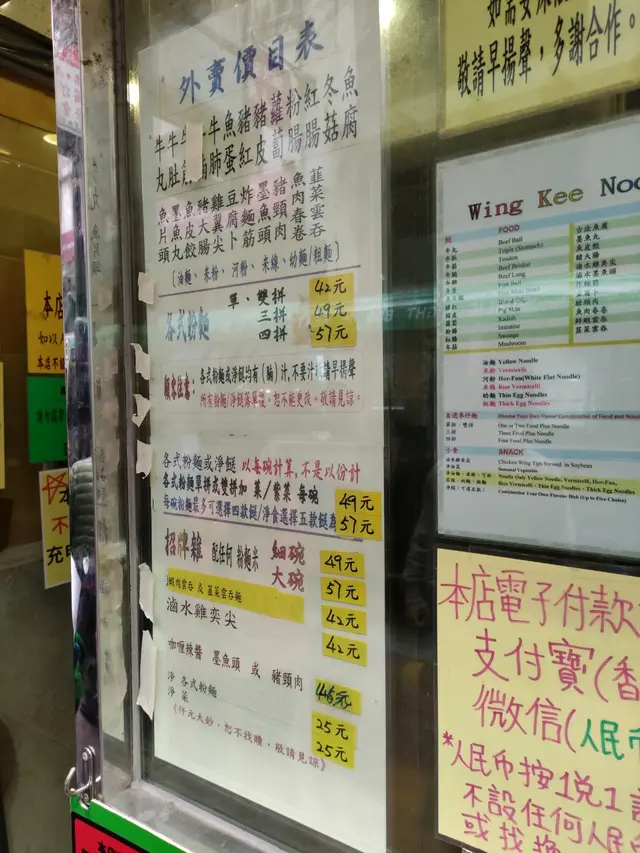 外賣價目表
牛牛牛牛魚豬豬蘿粉紅冬魚
丸肚筋腩肺蛋紅皮蔔腸腸菇腐
魚墨魚豬雞豆炸墨豬魚韮
片魚皮大翼腐麵魚頸肉菜
頭丸餃腸尖卜筋頭肉春雲
卷吞
（油麵、米粉、河粉、米線、幼麵/粗麵）
各式粉麵
單、雙拼 42元
三拼 49元
四拼 57元
顧客注意：
各式粉麵或淨餸均有（腩）汁，不要汁請早揚聲
所有粉麵/淨餸落單後，恕不能更改，敬請見諒。
各式粉麵或淨餸 以每碗計算，不是以份計
各式粉麵單拼或雙拼加 菜/紫菜 每碗 49元
每碗粉麵最多可選擇四款餸/淨食選擇五款餸為 57元
招牌雜 配任何 粉麵米 細碗 49元
大碗 57元
蝦肉雲吞 及 韮菜雲吞麵 42元
滷水雞奕尖 42元
咖喱辣醬 墨魚頭 或 豬頸肉 46元
淨 各式粉麵 25元
淨 菜 25元
《仟元大鈔，恕不找贖，敬請見諒》
如需要
敬請早揚聲，多謝合作。
Wing Kee Noo
FOOD
Beef Ball
Triple (Stomach)
Tendon
Beef Brisket
Beef Lung
Fish Ball
Pig Skin
Radish
Intestine
Sausage
Mushroom
油麵 Yellow Noodle
米粉 Vermicelli
河粉 Hor-Fun(White Flat Noodle)
米線 Rice Vermicelli
幼麵 Thin Egg Noodles
粗麵 Thick Egg Noodles
Choose Your Own Flavour Combination of Food and Nood
One or Two Food Plus Noodle
Three Food Plus Noodle
Four Food Plus Noodle
小食
SNACK
Chicken Wing Tips Served in Soybean
Seasonal Vegetable
Noodle Only Yellow Noodle, Vermicelli, Hor-Fun,
Rice Vermicelli - Thin Egg Noodles - Thick Egg Noodles
Combination Your Own Flavour Dish (Up to Five Choice)
本店電子付款
支付寶(香
微信(人民幣
*人民幣按1兌1
不設任何人民
或找換
本店
如以人
本店不
☆本
不
充電